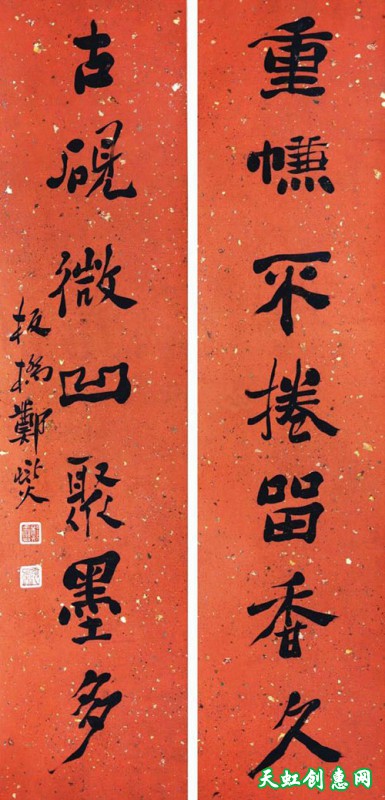 重㡘不捲留香久
古硯微凹聚墨多
板橋鄭燮
天虹创惠网